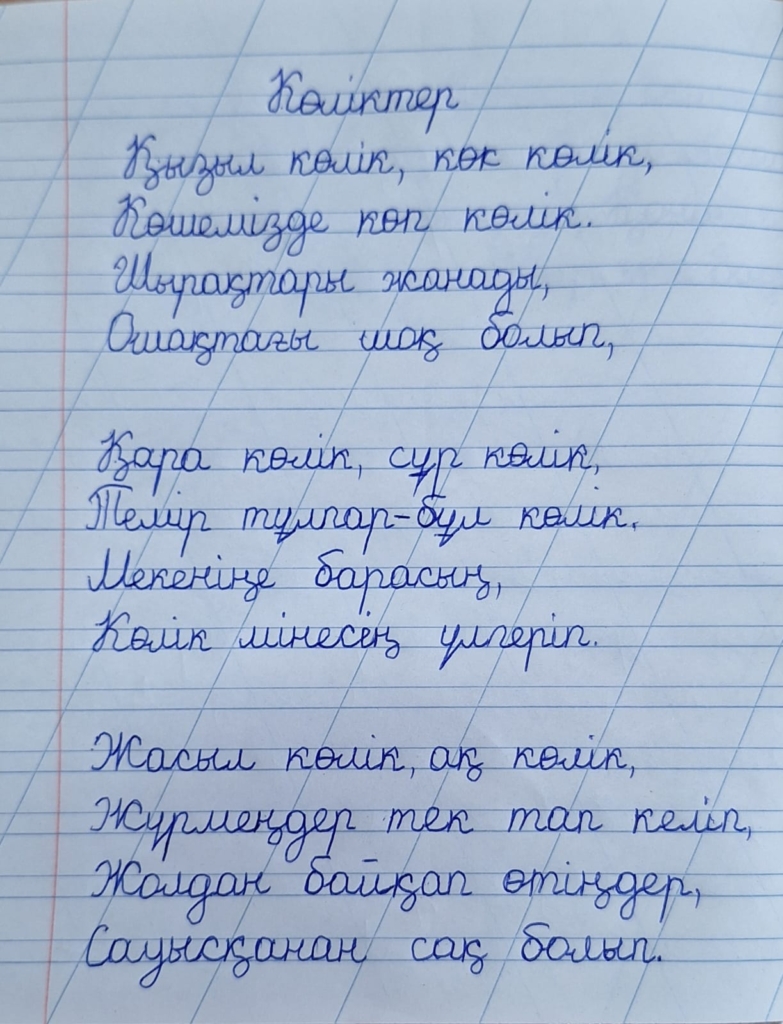 Көліктер
Қызыл көлік, көк көлік,
Көшемізде көп көлік.
Шырақтары жанады,
Ошақтағы шоқ болып,
Қара көлік, сұр көлік,
Темір тұлпар-бұл көлік.
Мекеніңе барасың,
Көлік мінесең үлгеріп.
Жасыл көлік, ақ көлік,
Жүрмеңдер тек тап келіп,
Жолдан байқап өтіңдер,
Сауысқанан сақ болып.